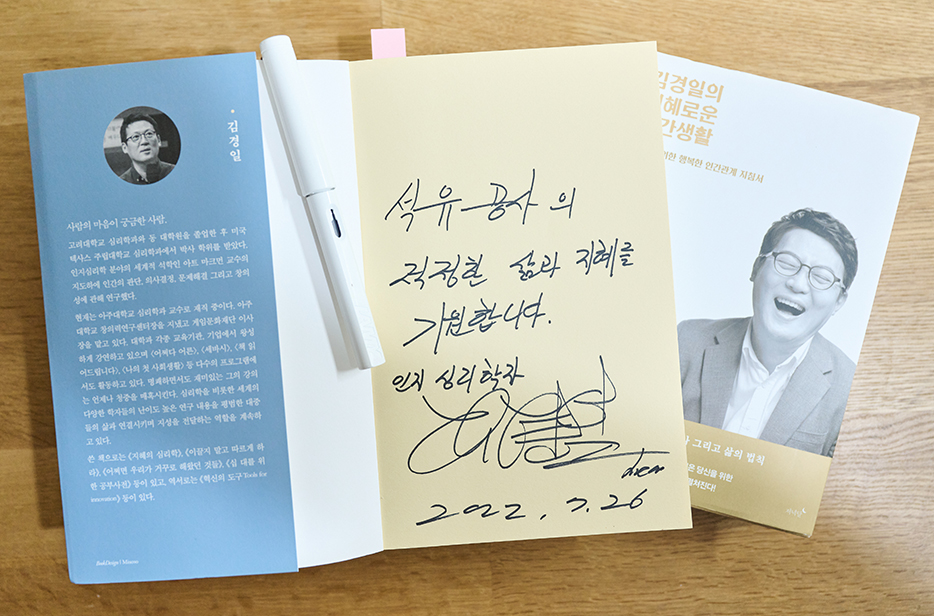 김경일
사람의 마음이 궁금한 사람.
고려대학교 심리학과와 동 대학원을 졸업한 후 미국
텍사스 주립대학교 심리학과에서 박사 학위를 받았다.
인지심리학 분야의 세계적 석학인 아트 마크먼 교수의
지도하에 인간의 판단, 의사결정, 문제해결 그리고 창의
성에 관해 연구했다.
현재는 아주대학교 심리학과 교수로 재직 중이다. 아주
대학교 창의력연구센터장을 지냈고 게임문화재단 이사
장을 맡고 있다. 대학과 각종 교육기관, 기업에서 왕성
하게 강연하고 있으며 〈어쩌다 어른〉, 〈세바시〉, 〈책 읽
어드립니다〉, 〈나의 첫 사회생활〉 등 다수의 프로그램에
서도 활동하고 있다. 명쾌하면서도 재미있는 그의 강의
는 언제나 청중을 매혹시킨다. 심리학을 비롯한 세계의
다양한 학자들의 난이도 높은 연구 내용을 평범한 대중
들의 삶과 연결시키며 지성을 전달하는 역할을 계속하
고 있다.
쓴 책으로는 《지혜의 심리학》, 《이끌지 말고 따르게 하
라》, 《어쩌면 우리가 거꾸로 해왔던 것들》, 《십 대를 위
한 공부사전》 등이 있고, 역서로는 《혁신의 도구 Tools for
innovation》 등이 있다.
BookDesign | Mimoon
석유공사의
적정한 삶과 지혜를
기원합니다.
인지 심리학자
2022. 7. 26
김경일의
지혜로운
간생활
위한 행복한 인간관계 지침서
그리고 삶의 법칙
은 당신을 위한
펼쳐진다!